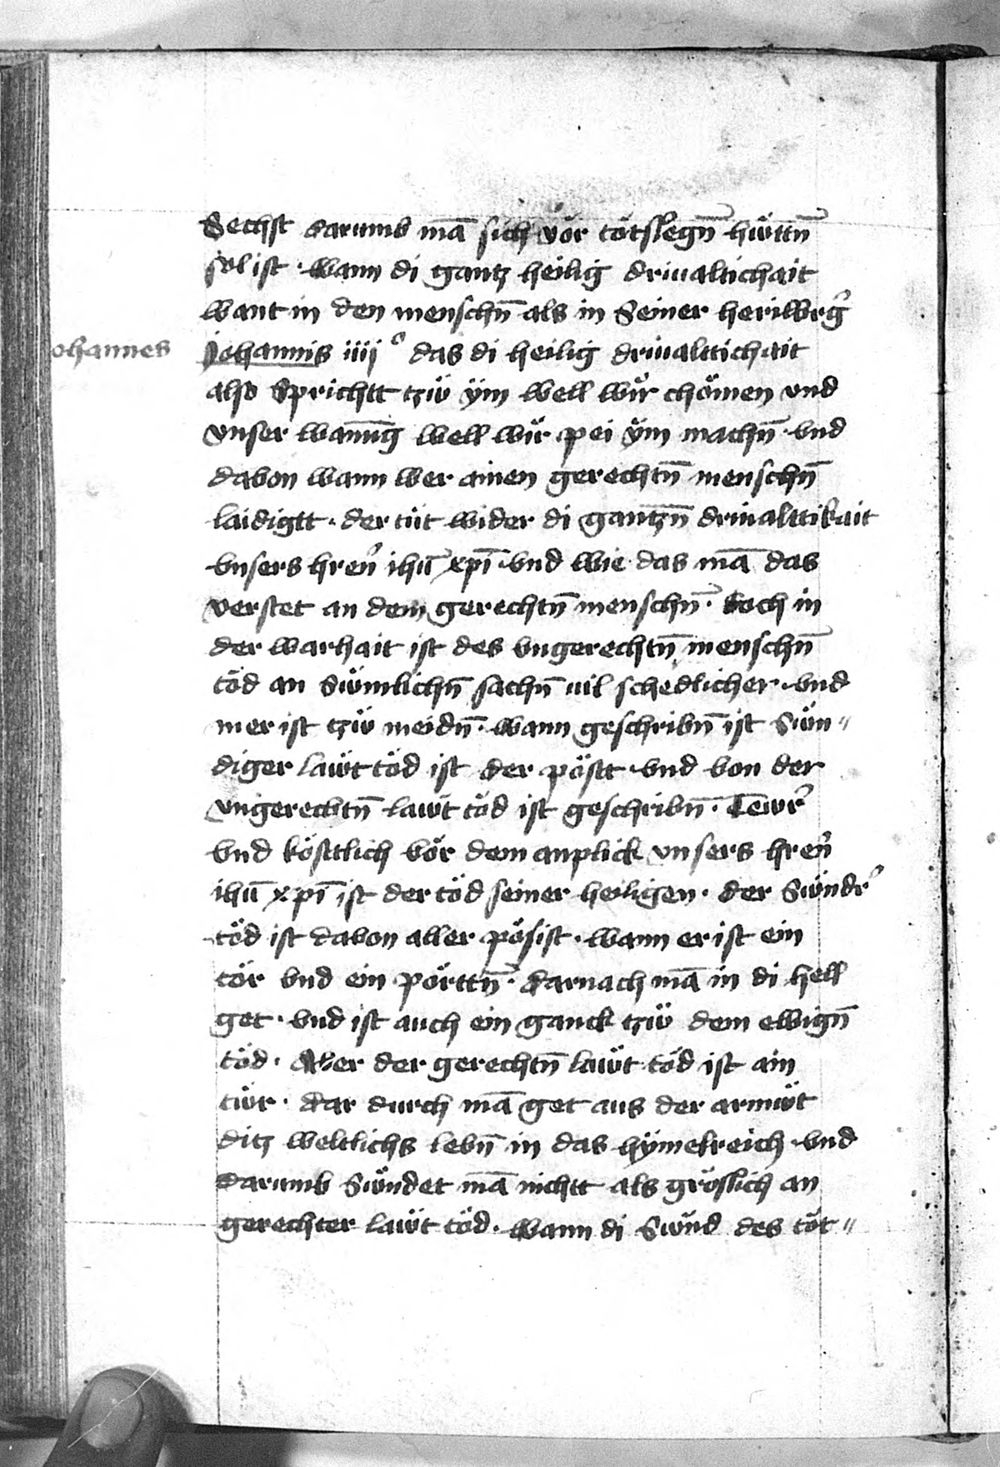 Sechst darumb mā sich vör tötslegn̄ hüttn̄
söl ist · wann di gantz heilig driualtichait
want in den menschn̄ als in Seiner heribrg̉
ohannes
Johannis iiij ͦ das di heilig driualttichait
also Sprichtt tzw̋ ÿm well wir chömen vnd
vnser wanūg well wir pei ÿm machn̄ · vnd
dabon wann wer ainen gerechtn̄ menschn̄
laidigtt · der tüt wider di gantzn̄ driualttikait
vnsers hren̉ ihū xpī · vnd wie das mā das
verstet an dem gerechtn̄ menschn̄ · doch in
der warhait ist des vngerechtn̄ menschn̄
töd an Sw̋ntlichn̄ sachn̄ uil schedlicher · vnd
mer ist tzw̋ meidn̄ · wann geschribn̄ ist Sw̋n〃
diger law̋t töd ist der pöstt · vnd von der
vngerechtn̄ law̋t töd ist geschribn̄ · Tewr̉
vnd kösttlich vör dem anplick vnsers hren̉
ihū xpī ist der töd seiner heiligen · der Sw̋ndr̉
töd ist dabon aller pösist · wann er ist ein
tör vnd ein pörttn̄ · darnach mā in di hell
get · vnd ist auch ein ganck tzw̋ dem ewign̄
töd · Aber der gerechtn̄ law̋t töd ist ain
tw̋r · dar durch mā get aus der armw̋t
ditz weltlichs lebn̄ in das hÿmelreich · vnd
darumb Sw̋ndet mā nichtt als gröslich an
gerechter law̋t töd · wann di Sw̋nd des töt〃